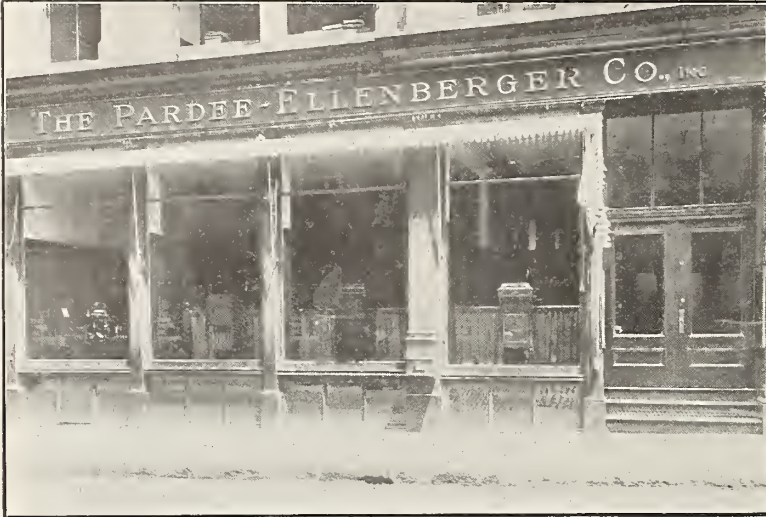 THE PARDEE-ELLENBERGER CO., INC